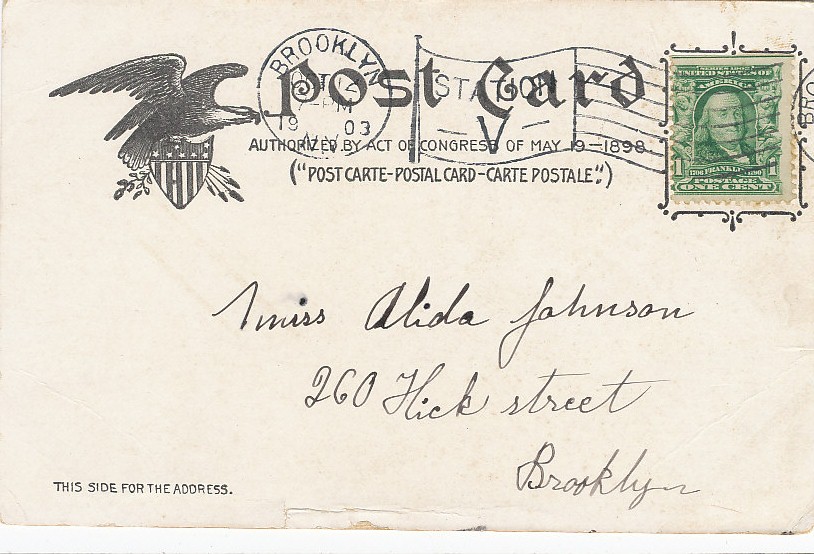 Post Card
BROOKLYN
OCT
-PM
19 03
N.Y.
STATION
V
AUTHORIZED BY ACT OF CONGRESS OF MAY 19-1898
("POST CARTE-POSTAL CARD-CARTE POSTALE".)
SERIES 1902
UNITED STATES OF
AMERICA
1 1
1706 FRANKLIN 1790
POSTAGE
ONE CENT
BRO
Miss Alida Johnson
260 Hick street
Brooklyn
THIS SIDE FOR THE ADDRESS.